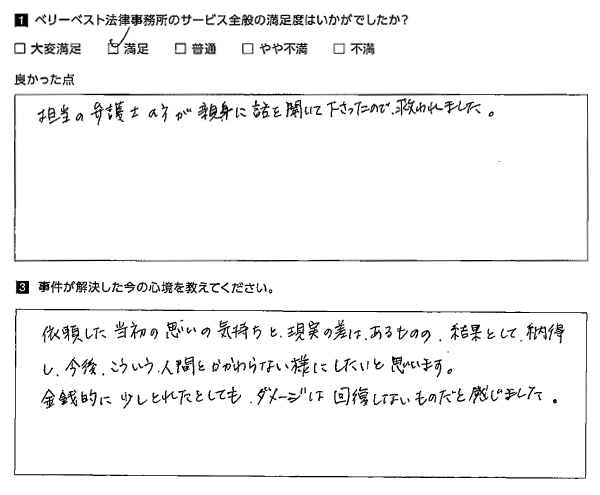 1 ベリーベスト法律事務所のサービス全般の満足度はいかがでしたか?
□ 大変満足 ☑ 満足 □ 普通 □ やや不満 □ 不満
良かった点
担当の弁護士の方が親身に話を聞いて下さったので、救われました。
3 事件が解決した今の心境を教えてください。
依頼した当初の思いの気持ちと、現実の差は、あるものの、結果として、納得
し、今後、こういう、人間とかかわらない様にしたいと思います。
金銭的に少しとれたとしても、ダメージは回復しないものだと感じました。